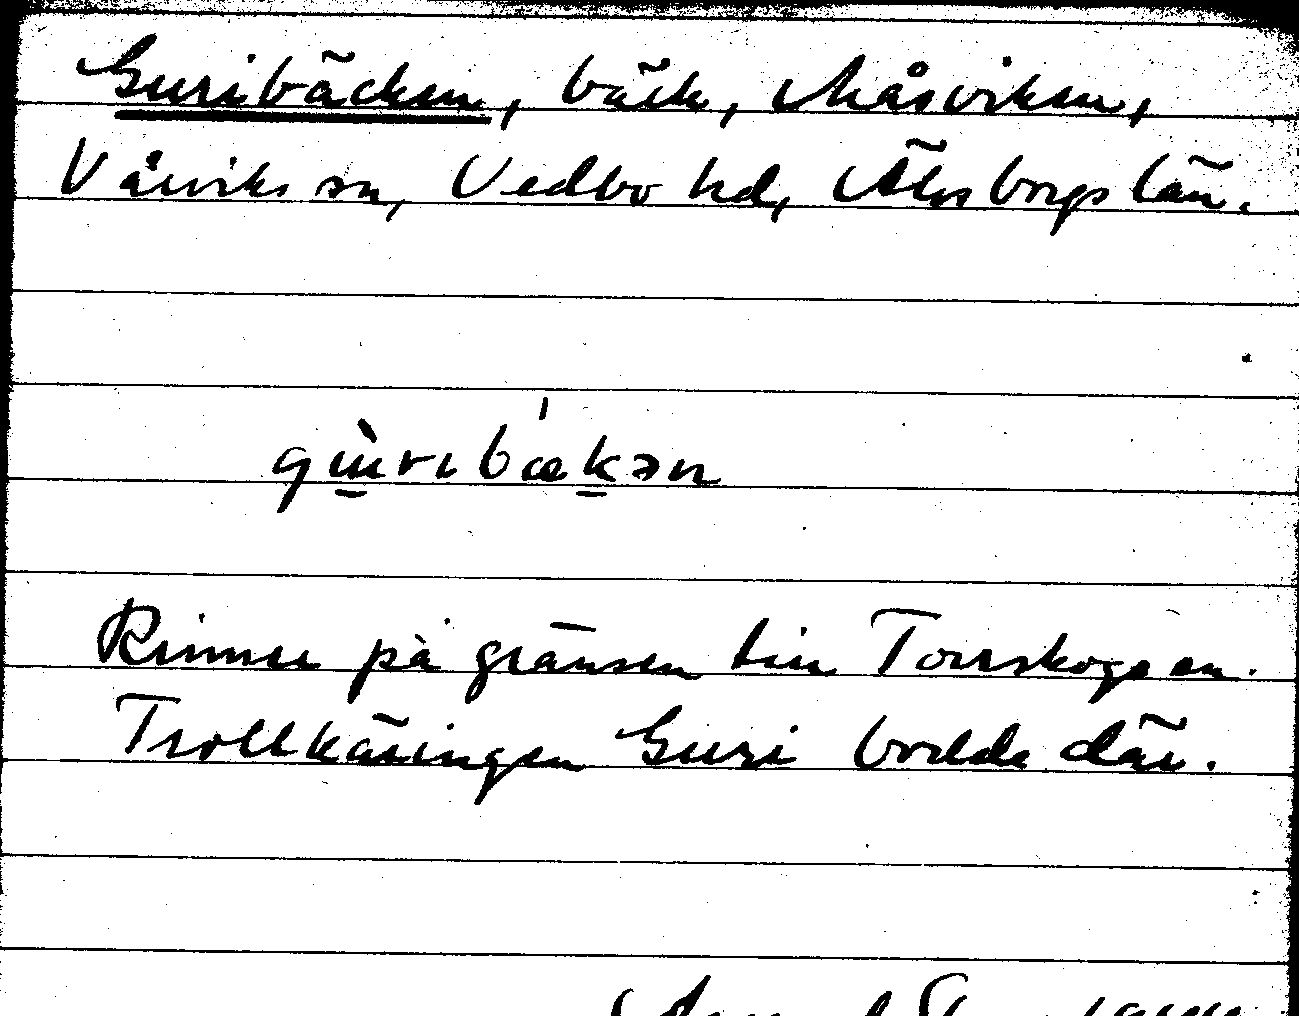 Guribäcken, bäck, Måsviken,
Vårviks sn, Vedbo hd, Älvsborgs län.
gɯ̀ribækən
Rinner på gränsen till Torrskogs sn.
Trollkäringen Guri bodde där.